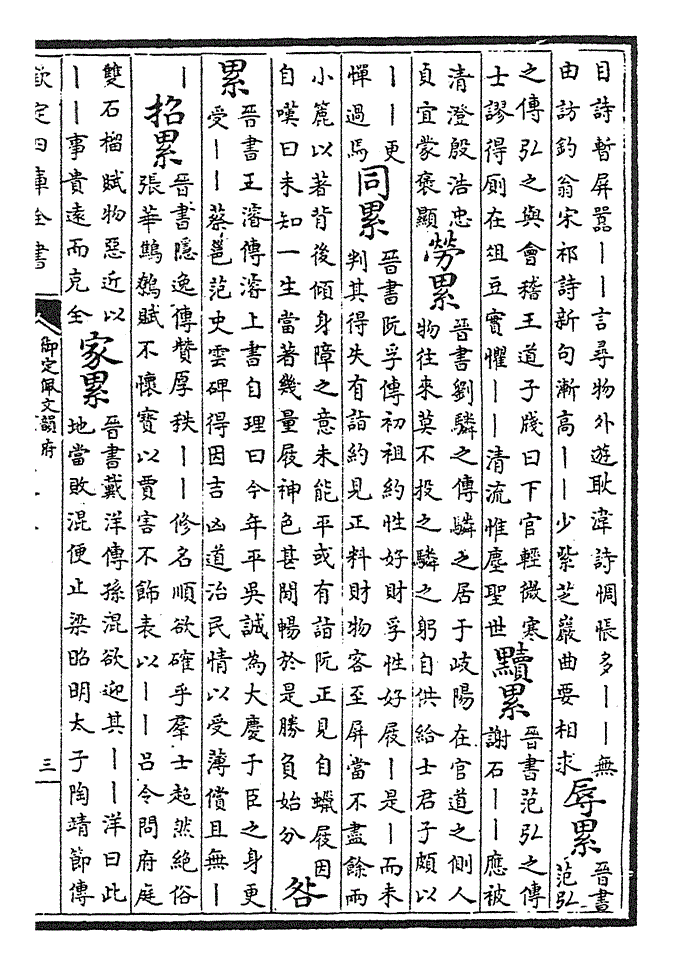 目詩暫屏囂丨丨言尋物外遊耿湋詩惆悵多丨丨無
由訪釣翁宋祁詩新句漸高丨丨少紫芝巖曲要相求
辱累
晉書
范弘
之傳弘之與會稽王道子牋曰下官輕微寒
士謬得厠在俎豆實懼丨丨清流惟塵聖世
黷累
晉書范弘之傳
謝石丨丨應被
清澄殷浩忠
貞宜蒙褒顯
勞累
晉書劉驎之傳驎之居于岐陽在官道之側人
物往來莫不投之驎之躬自供給士君子頗以
丨丨更
憚過焉
同累
晉書阮孚傳初祖約性好財孚性好屐丨是丨而未
判其得失有詣約見正料財物客至屏當不盡餘兩
小簏以著背後傾身障之意未能平或有詣阮正見自蠟屐因
自嘆曰未知一生當著幾量屐神色甚閒暢於是勝負始分
咎
累
晉書王濬傳濬上書自理曰今年平吳誠為大慶于臣之身更
受丨丨蔡邕范史雲碑得因吉凶道治民情以受薄償且無丨
丨
招累
晉書隱逸傳贊厚秩丨丨修名順欲確乎羣士超然絕俗
張華鷦鷯賦不懷寶以賈害不飾表以丨丨吕令問府庭
雙石榴賦物惡近以
丨丨事貴遠而克全
家累
晉書戴洋傳孫混欲迎其丨丨洋曰此
地當敗混便止梁昭明太子陶靖節傳
欽定四庫全書
御定佩文韻府
三